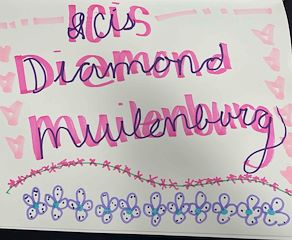 Icis
Diamond
muilenburg